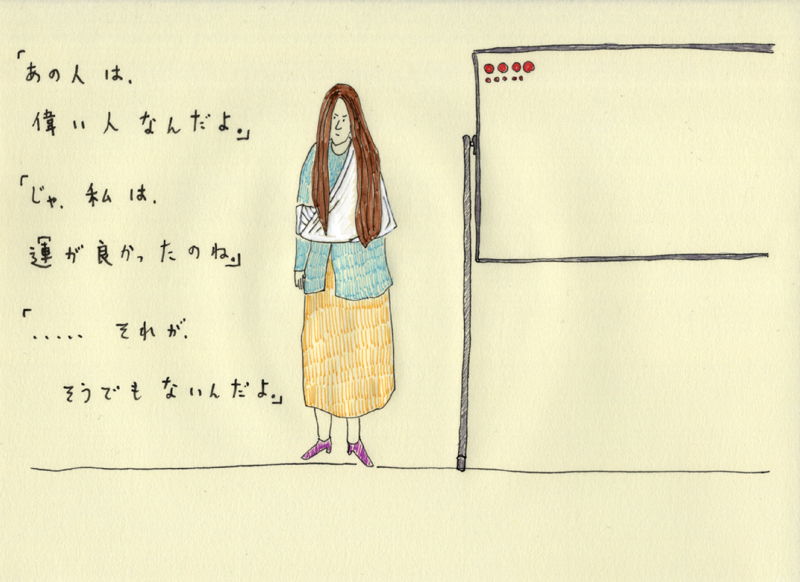 「あの人は、
偉い人なんだよ。」
「じゃ、私は、
運が良かったのね。」
「..... それが、
そうでもないんだよ。」